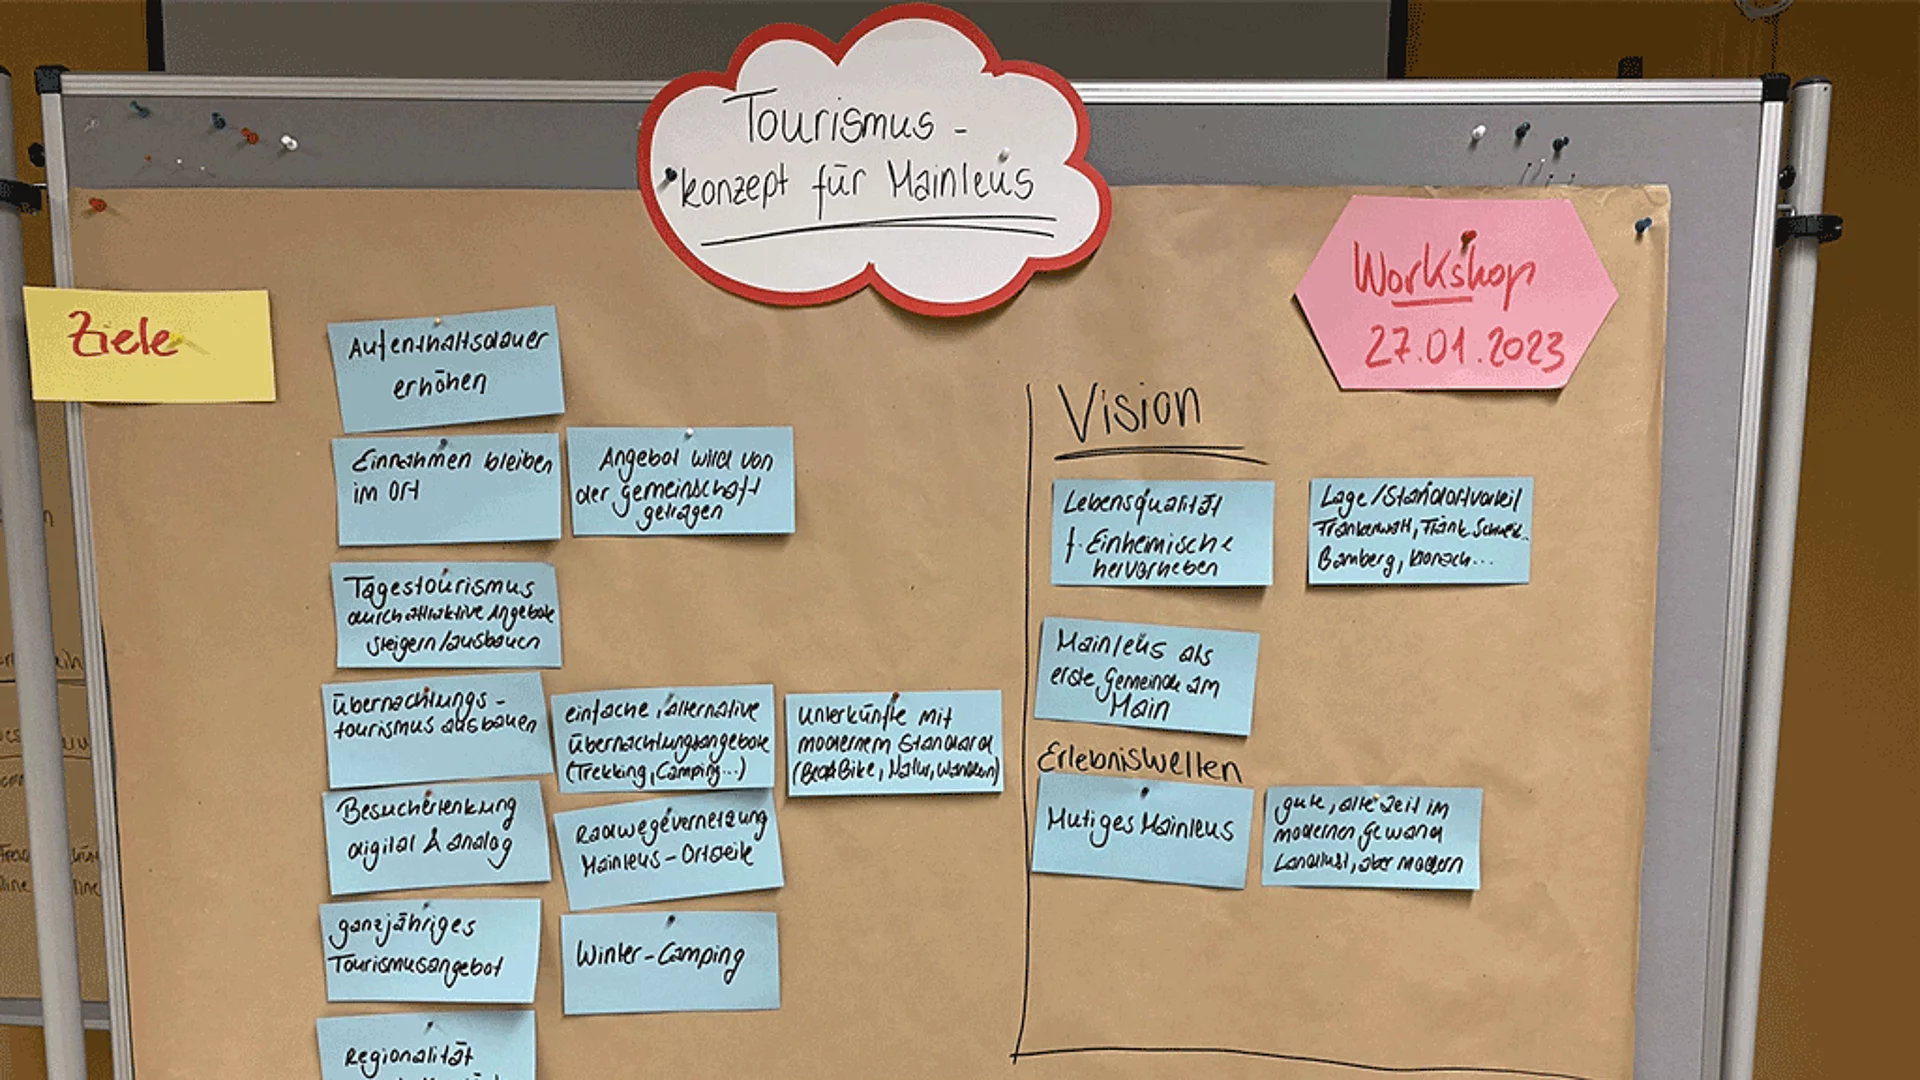 Tourismus-
konzept für Mainleus
Workshop
27.01.2023
Ziele
Aufenthaltsdauer
erhöhen
Einnahmen bleiben
im Ort
Angebot wird von
der gemeinschaft
getragen
Tagestourismus
durch attraktive Angebote
steigern/ausbauen
Übernachtungs-
tourismus ausbauen
einfache, alternative
Übernachtungsangebote
(Trekking, Camping...)
Unterkünfte mit
modernem Standard
Bike, Natur, Wandern)
Besucherlenkung
digital & analog
Radwegevernetzung
Mainleus-Ortsteile
ganzjähriges
Tourismusangebot
Winter-Camping
Regionalität
Vision
Lebensqualität
f. Einheimische
hervorheben
Lage/Standortvorteil
Frankenwald, Fränk. Schweiz..
Bamberg, Kronach...
Mainleus als
erste Gemeinde am
Main
Erlebniswelten
Mutiges Mainleus
gute, alte Zeit im
modernen Gewand
Landlust, aber modern